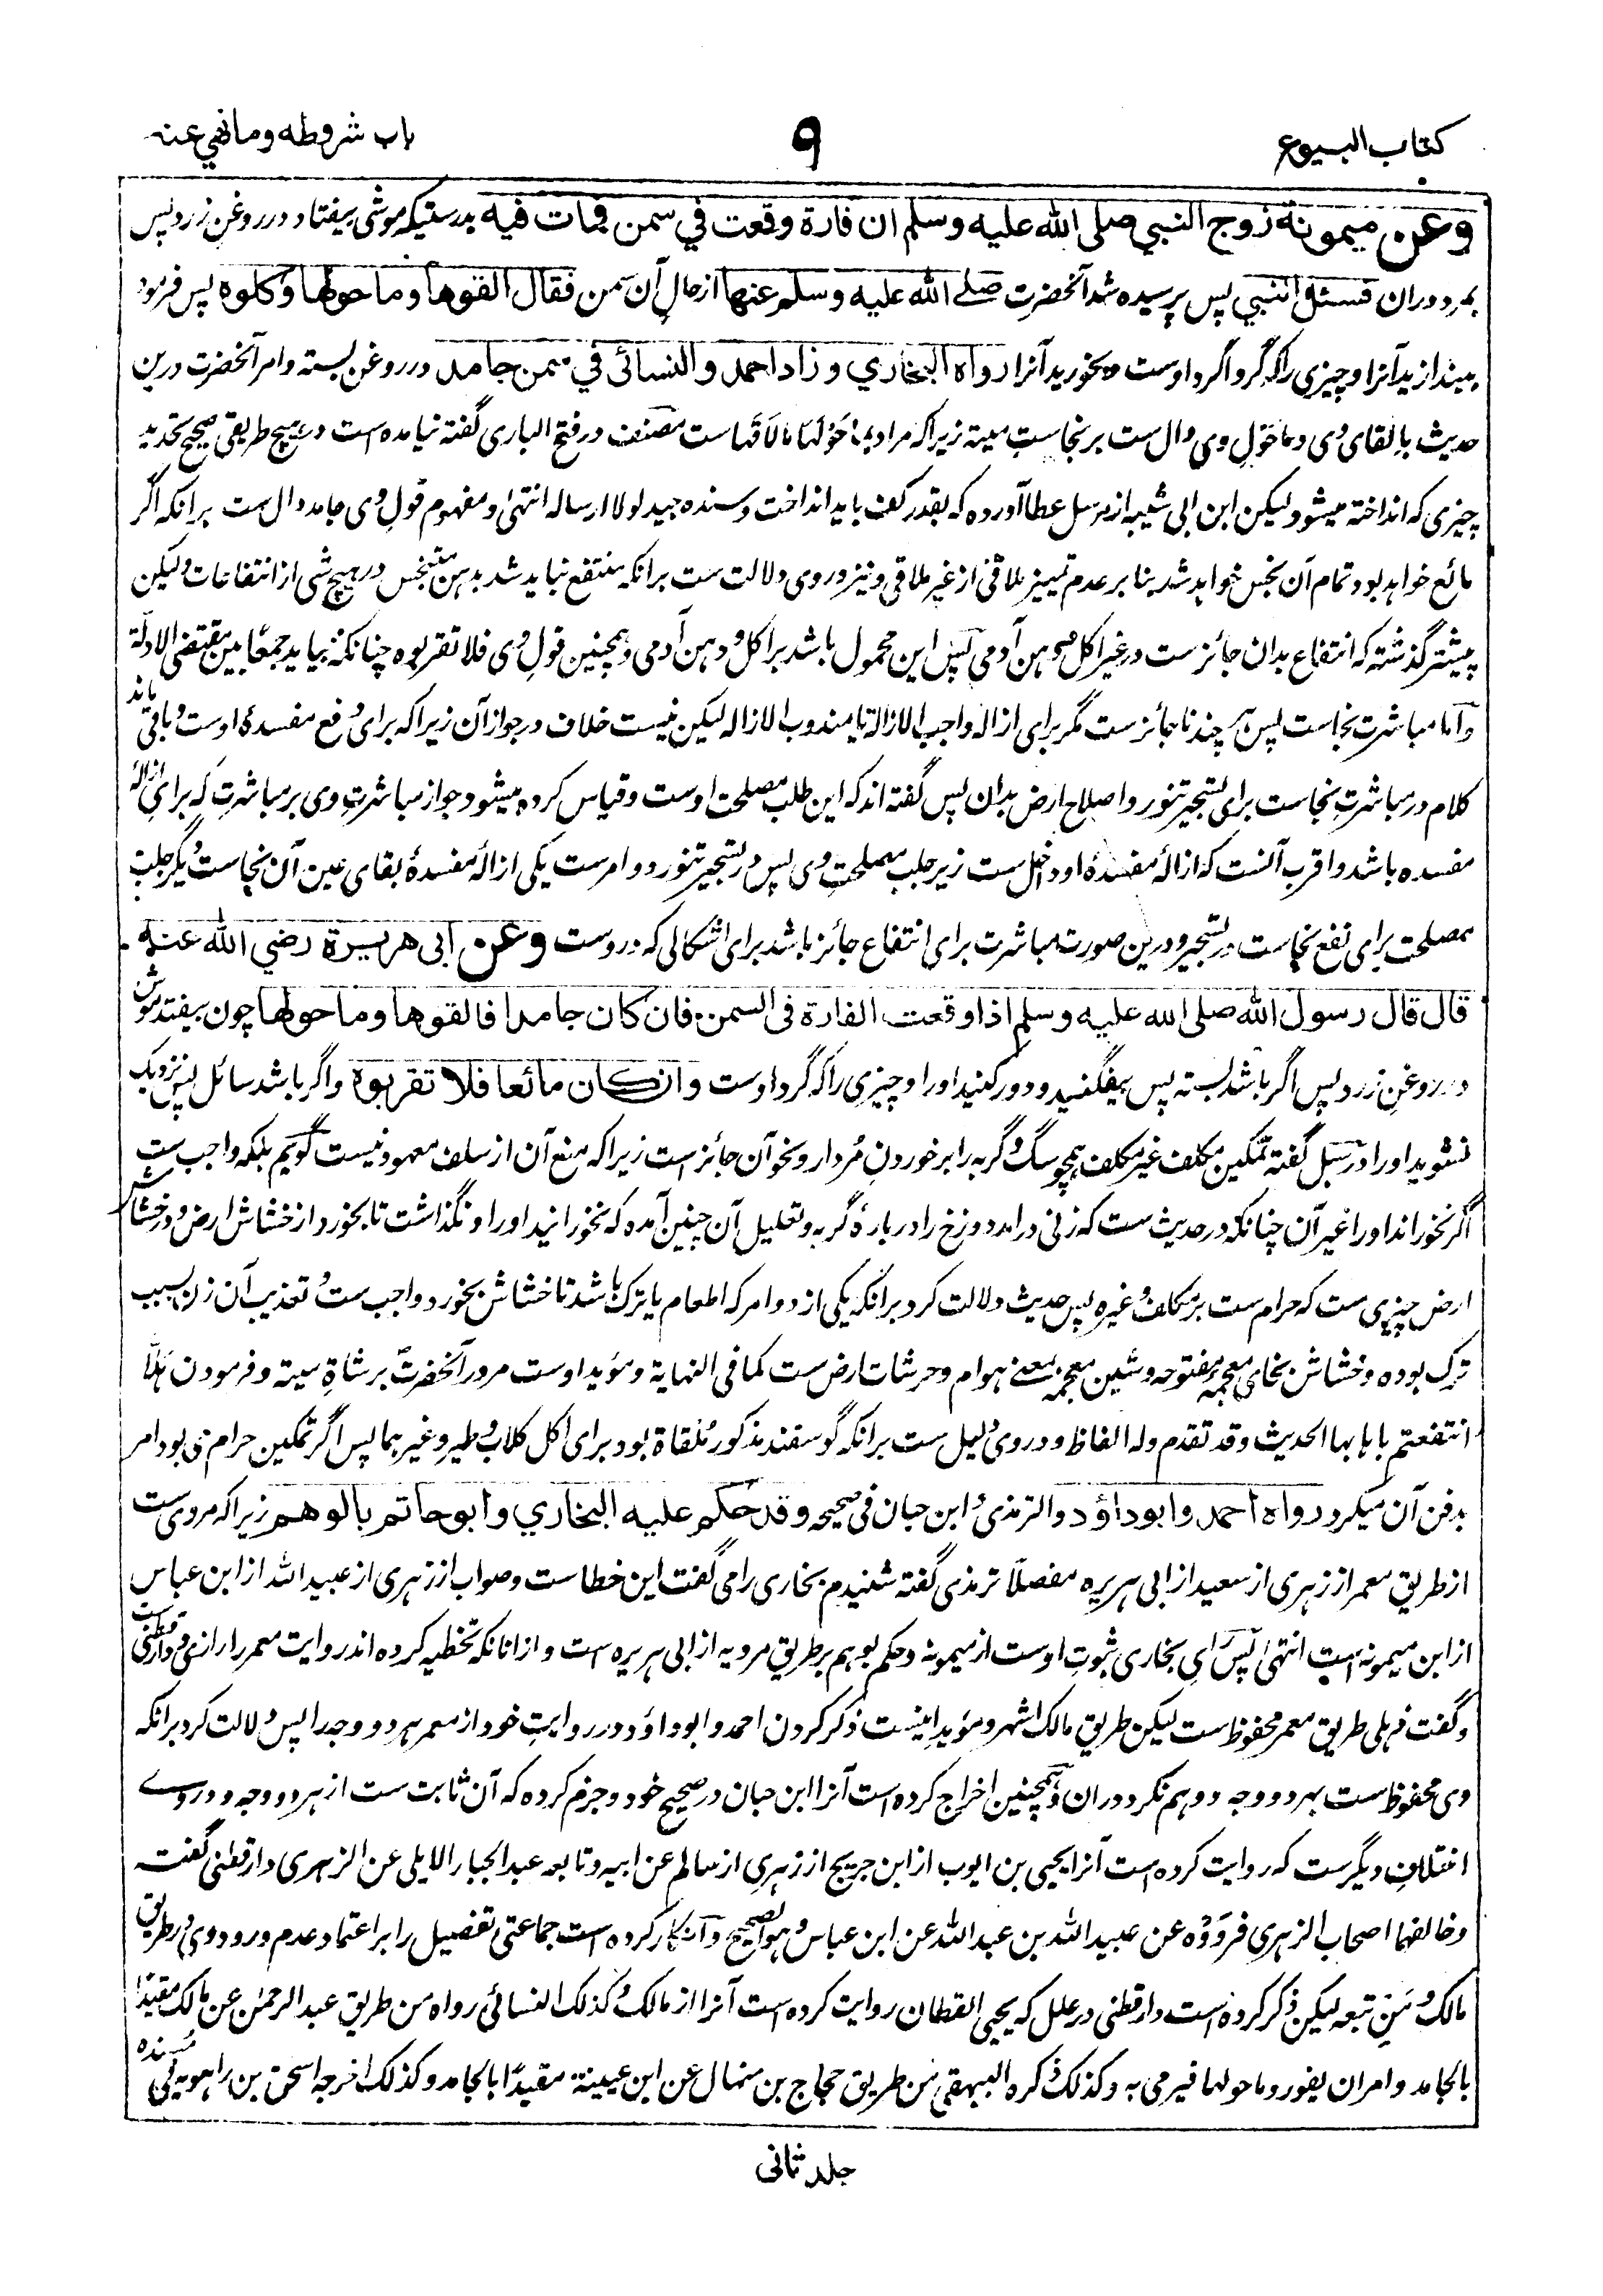 کتاب البیوع
۹
باب شروطه وما نهي عنه
وعن میمونة زوج النبي صلى الله علیه وسلم ان فارة وقعت في سمن فماتت فیه بدرستیکه موشی بیفتاد در روغن زرد پس
بمرد دران فسئل النبي پس پرسیده شد آنحضرت صلے الله علیه وسلم عنها از حال آن سمن فقال القوها وما حولها وکلوه پس فرمود
بیندازید آنرا و چیزی را که گرداگرد اوست و بخورید آنرا رواه البخاري و زاد احمد والنسائی في سمن جامد در روغن بسته و امر آنحضرت درین
حدیث بالقای وی و ماحول وی دال ست بر نجاست میته زیرا که مراد بما حولها مالاقها ست مصنف در فتح الباری گفته نیامده است در هیچ طریقی صحیح تحدید
چیزی که انداخته میشود لیکن ابن ابی شیبه از مرسل عطا آورده که بقدر کف باید انداخت وسنده جید لولا ارساله انتهی و مفهوم قول وی جامد دال ست برانکه اگر
مائع خواهد بود تمام آن نجس خواهد شد بنا بر عدم تمییز ملاقی از غیر ملاقی و نیز در وی دلالت ست برانکه منتفع نباید شد بدهن متنجس در هیچ شی از انتفاعات ولیکن
پیشتر گذشته که انتفاع بدان جائز ست در غیر اکل و دهن آدمی پس این محمول باشد بر اکل و دهن آدمی و همچنین قول وی فلا تقربوه چنانکه بیاید جمعًا بین مقتضی الادلة
و اما مباشرت نجاست پس هر چند ناجائز ست مگر برای ازاله واجب الازالة یا مندوب الازاله لیکن نیست خلاف در جواز آن زیرا که برای دفع مفسدۀ اوست و باقی ماند
کلام در مباشرت نجاست برای تسجیر تنور و اصلاح ارض بدان پس گفته اند که این طلب مصلحت اوست و قیاس کرده میشود جواز مباشرت وی بر مباشرت که برای ازالۀ
مفسده باشد و اقرب آنست که ازالۀ مفسدۀ او داخل ست زیر جلب مصلحت وی پس در تسجیر تنور دو امر ست یکی ازالۀ مفسدۀ بقای عین آن نجاست و دیگر جلب
مصلحت برای نفع نجاست در تسجیر و درین صورت مباشرت برای انتفاع جائز باشد برای اشکالی که دروست وعن ابی هریرة رضي الله عنه
قال قال رسول الله صلى الله علیه وسلم اذا وقعت الفارة فی السمن فان کان جامدا فالقوها وما حولها چون بیفتد موش
در روغن زرد پس اگر باشد بسته پس بیفگنید و دور کنید او را و چیزی را که گرد اوست وان کان مائعا فلا تقربوه و اگر باشد سائل پس نزدیک
نشوید او را در سبل گفته تمکین مکلف غیر مکلف همچو سگ و گربه را بر خوردن مُردار و نحو آن جائز است زیرا که منع آن از سلف معهود نیست گویم بلکه واجب ست
اگر نخوراند او را غیر آن چنانکه در حدیث ست که زنی درامد دوزخ را در بارۀ گربه و تعلیل آن چنین آمده که نخورانید او را و نگذاشت تا بخورد از خشاش ارض و در خشاش
ارض چیزی ست که حرام ست بر مکلف و غیره پس حدیث دلالت کرد برانکه یکی از دو امر که اطعام یا ترک باشد تا خشاش بخورد واجب ست و تعذیب آن زن بسبب
ترک بوده و خشاش بخای معجمه مفتوحه و شین معجمه بمعنے هوام و حشرات ارض ست کما فی النهایة و مؤید اوست مرور آنحضرت بر شاة میتة و فرمودن هلّا
انتفعتم باهابها الحدیث وقد تقدم وله الفاظ و در وی دلیل ست برانکه گوسفند مذکور مُلقاة بود برای اکل کلاب و طیر و غیرهما پس اگر تمکین حرام می بود امر
بدفن آن میکرد رواه احمد وابو داؤد والترمذی و ابن حبان فی صحیحه وقد حکم علیه البخاري وابو حاتم بالوهم زیرا که مروی ست
از طریق معمر از زهری از سعید از ابی هریره مفصلاً ترمذی گفته شنیدم بخاری را می گفت این خطاست و صواب از زهری از عبید الله از ابن عباس
از ابن میمونه است انتهی پس رای بخاری ثبوت اوست از میمونه و حکم بوهم بر طریق مرویه از ابی هریره است و ازانانکه تخطیه کرده اند روایت معمر را رازی و دارقطنی ست
و گفت ذهلی طریق معمر محفوظ ست لیکن طریق مالک اشهر و مؤید اینست ذکر کردن احمد و ابو داؤد در روایت خود از معمر هر دو وجه را پس دلالت کرد برانکه
وی محفوظ ست بهر دو وجه و وهم نکرد دران و همچنین اخراج کرده است آنرا ابن حبان در صحیح خود و جزم کرده که آن ثابت ست از هر دو وجه و در وے
اختلاف دیگر ست که روایت کرده است آنرا یحیی بن ایوب از ابن جریج از زهری از سالم عن ابیه وتابعه عبد الجبار الایلی عن الزهری دارقطنی گفت
وخالفهما اصحاب الزهری فرووه عن عبید الله بن عبد الله عن ابن عباس وهو الصحیح و انکار کرده است جماعتی تفصیل را بر اعتماد عدم ورود وی در طریق
مالک و من تبعه لیکن ذکر کرده است دارقطنی در علل که یحیی القطان روایت کرده است آنرا از مالک وکذلک النسائی رواه من طریق عبد الرحمٰن عن مالک مقیدًا
بالجامد وامر ان یقور وما حولها فیرمی به وکذلک ذکره البیهقی من طریق حجاج بن منهال عن ابن عیینة مقیدًا بالجامد وکذلک اخرجه اسحق بن راهویه فی مسنده
جلد ثانی